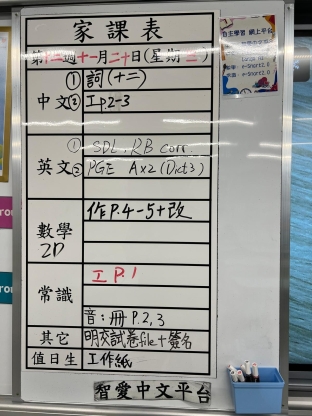 家課表
第十二週十一月二十日(星期三)
中文
①詞(十二)
②工P.2-3
英文
①SDL, RB corr.
②PGE Ax2(Dict3)
數學
2D
作P.4-5+改
常識
工P.1
音:冊P.2,3
其它
明交試卷file+簽名
值日生
工作紙
智愛中文平台
自主學習 網上平台